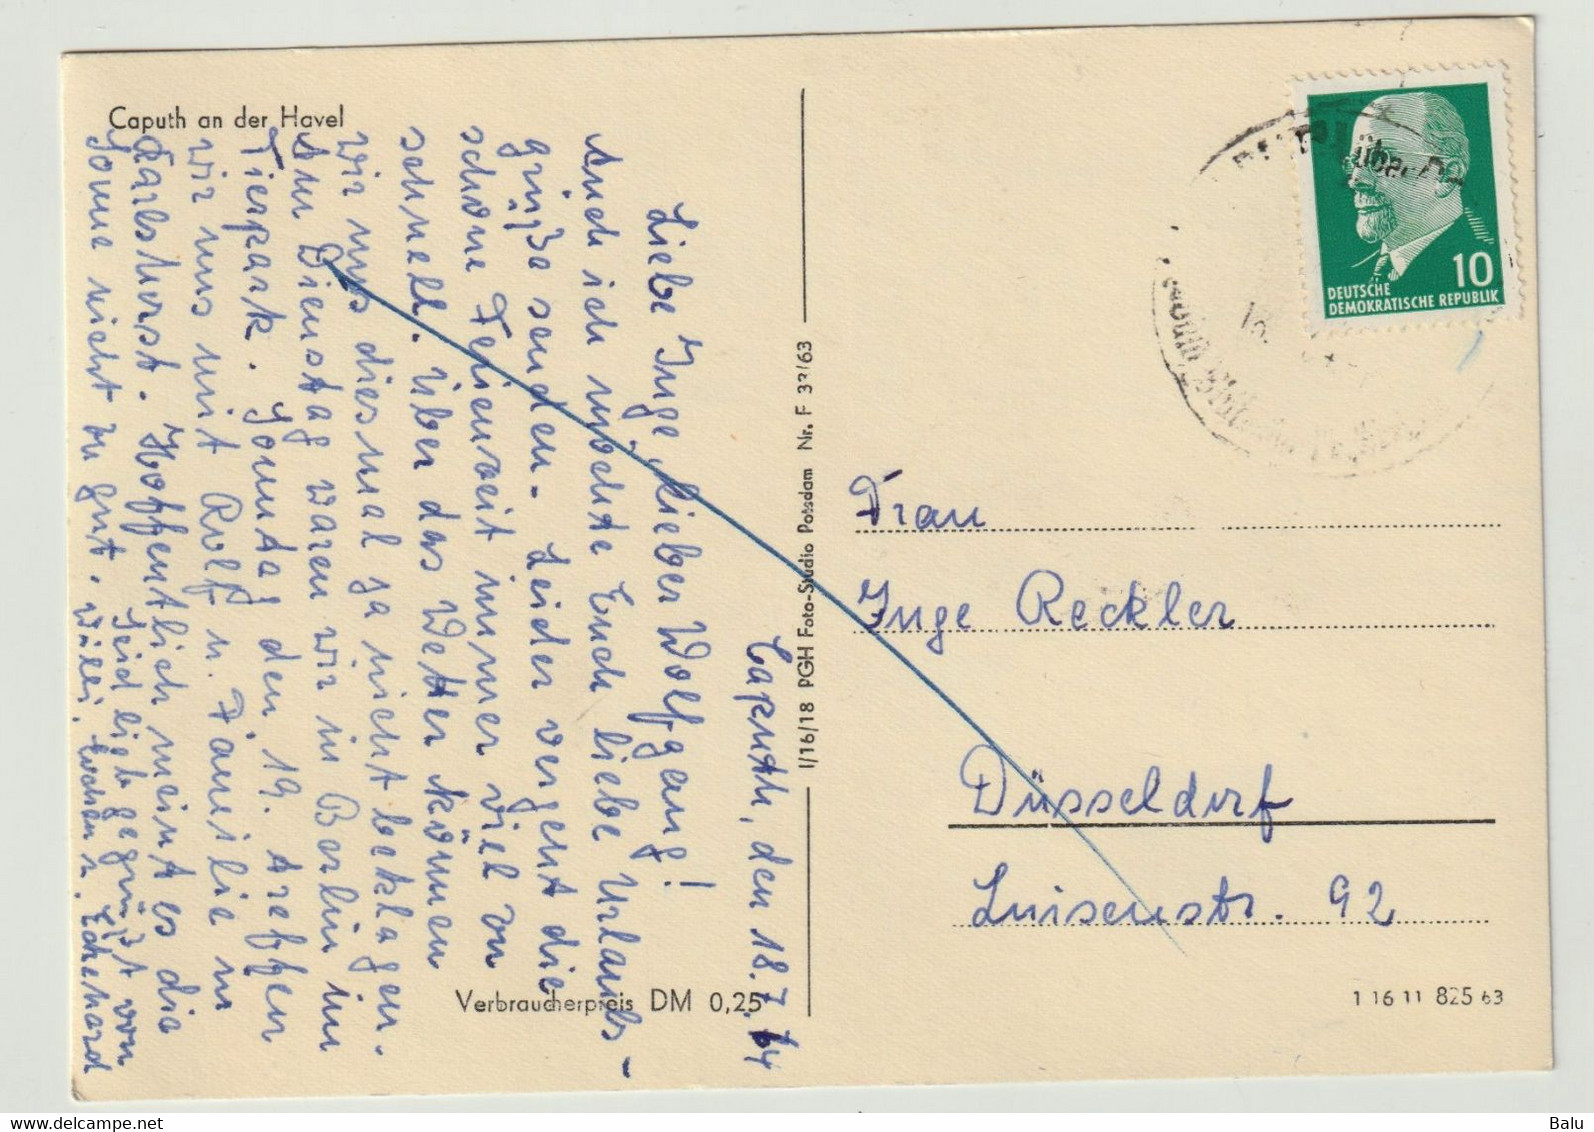 Caputh an der Havel
Caputh, den 18.7.64
Liebe Inge, lieber Wolfgang!
Auch ich möchte Euch liebe Urlaubs-
grüße senden. Leider vergeht die
schöne Ferienzeit immer viel zu
schnell. Über das Wetter können
wir uns diesmal ja nicht beklagen.
Am Dienstag waren wir in Berlin im
Tierpark. Sonntag den 19. treffen
wir uns mit Rolf u. Familie in
Karlshorst. Hoffentlich meint es die
Sonne nicht zu gut.
Seid lieb gegrüßt von
Willi, u. Eckehard
Verbraucherpreis DM 0,25
I/16/18 PGH Foto-Studio Potsdam Nr. F 33/63
über
10
DEUTSCHE
DEMOKRATISCHE REPUBLIK
Frau
Inge Reckler
Düsseldorf
Luisenstr. 92
1 16 11 825 63
Balu